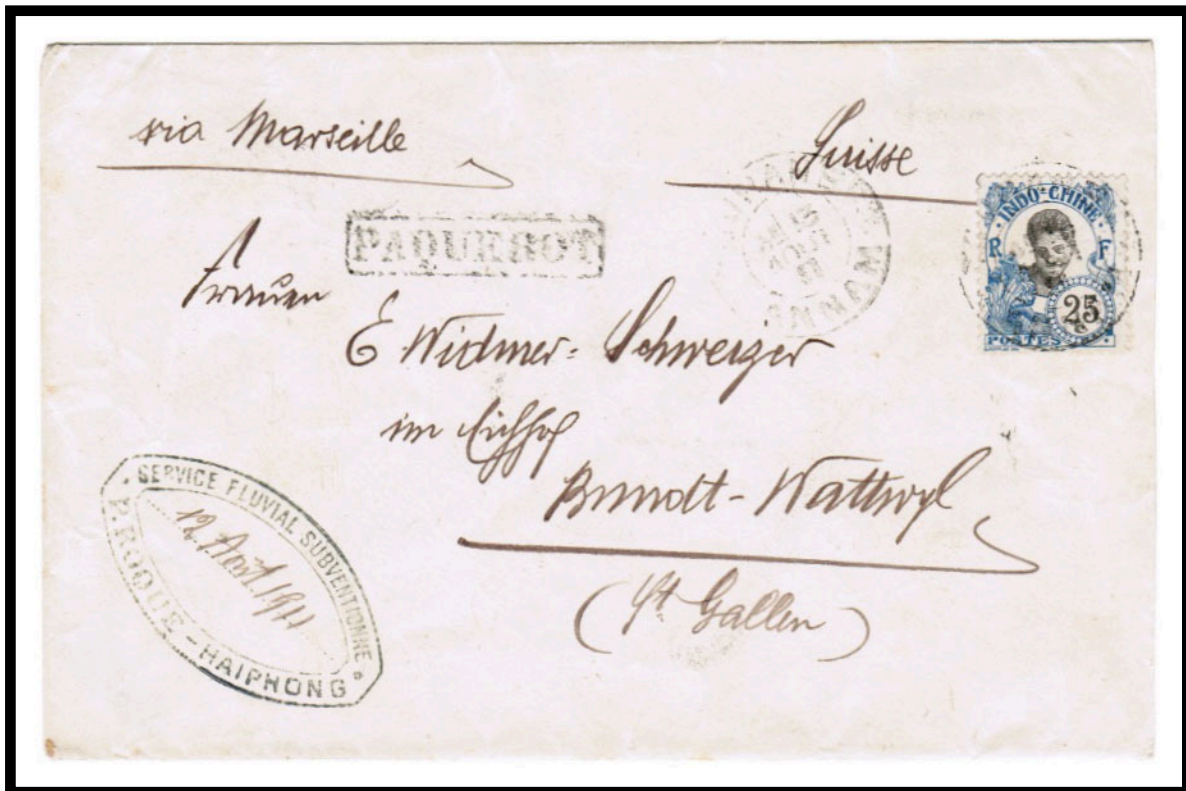 via Marseille
Suisse
PAQUEBOT
ANNAM
INDO-CHINE
R F
25
c
POSTES
Frauen
E Widmer-Schweizer
im Eichhof
Bundt-Wattwyl
(St. Gallen)
SERVICE FLUVIAL SUBVENTIONNE
P. ROQUE - HAIPHONG
12 Août 1911